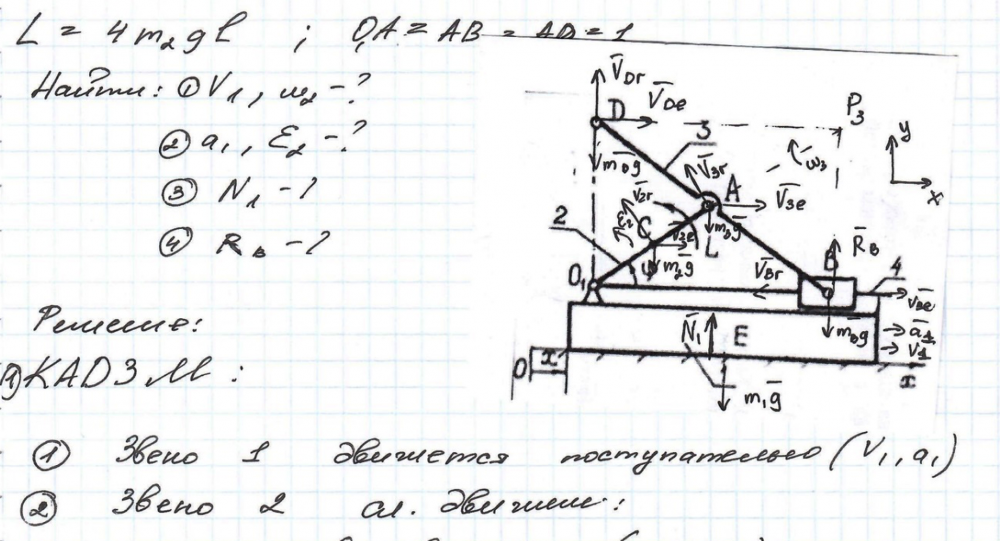 L = 4m₂gl ; O₁A = AB = AD = 1
Найти: ① V₁, ω₂ - ?
② a₁, ε₂ - ?
③ N₁ - ?
④ R_B - ?
V̄Dr
V̄De
D
P₃
3
ω̄₃
y
x
m̄_Dg
V̄3r
A
V̄3e
V̄2r
2
ε₂
C
V̄2e
m₃g
L
φ
m₂ḡ
O₁
V̄Br
B
R̄_B
4
V̄Be
N̄₁
E
m̄_Bg
ā₁
V̄₁
O
x
x
m₁ḡ
Решение:
КАДЗМ:
① Звено 1 движется поступательно (V₁, a₁)
② Звено 2 сл. движение: